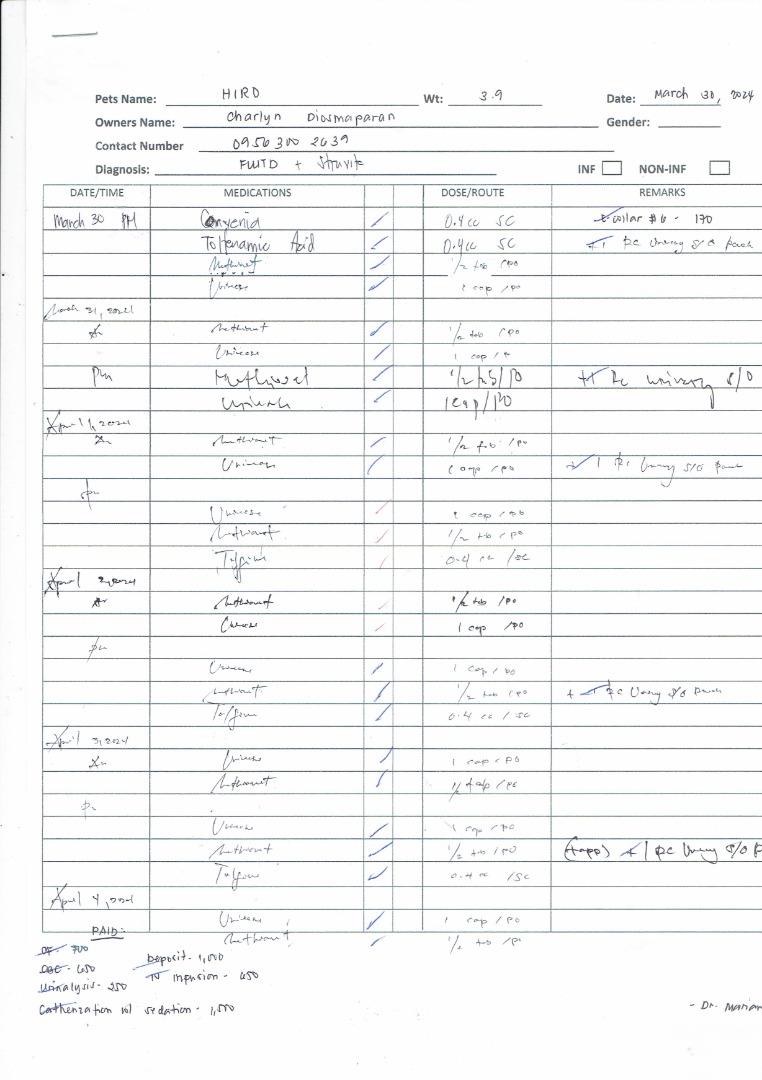 Pets Name: HIRO Wt: 3.9 Date: March 30, 2024
Owners Name: Charlyn Diosmaparan Gender:
Contact Number 0956 300 2639
Diagnosis: FLUTD + Struvite INF NON-INF
DATE/TIME MEDICATIONS DOSE/ROUTE REMARKS
March 30 PM Convenia 0.4cc SC E-collar #6 - 170
Tolfenamic Acid 0.4cc SC + 1 pc Urinary S/O pouch
Methiovet 1/2 tab / po
Urinease 1 cap / po
March 31, 2024
Am Methiovet 1/2 tab / po
Urinease 1 cap /
Pm Methiovet 1/2 tab / PO + 1 pc urinary S/O
Urinease 1 cap / PO
April 1, 2024
Am Methiovet 1/2 tab / po
Urinease 1 cap / po + 1 pc Urinary S/O pouch
pm
Urinease 1 cap / po
Methiovet 1/2 tab / po
0.4 cc / sc
April 2, 2024
Am Methiovet 1/2 tab / po
Urinease 1 cap / po
pm
Urinease 1 cap / po
Methiovet 1/2 tab / po + 1 pc Urinary S/O pouch
0.4 cc / SC
April 3, 2024
Am Urinease 1 cap / po
Methiovet 1/2 / po
pm
Urinease 1 cap / po
Methiovet 1/2 tab / po + 1 pc Urinary S/O
0.4 cc / SC
April 4, 2024
Urinease 1 cap / po
PAID: Methiovet 1/2 tab / po
- 700
CBC - 650 Deposit - 1,000
Urinalysis - 250 IV infusion - 650
Catherization w/ sedation - 1,500
- Dr. Marian